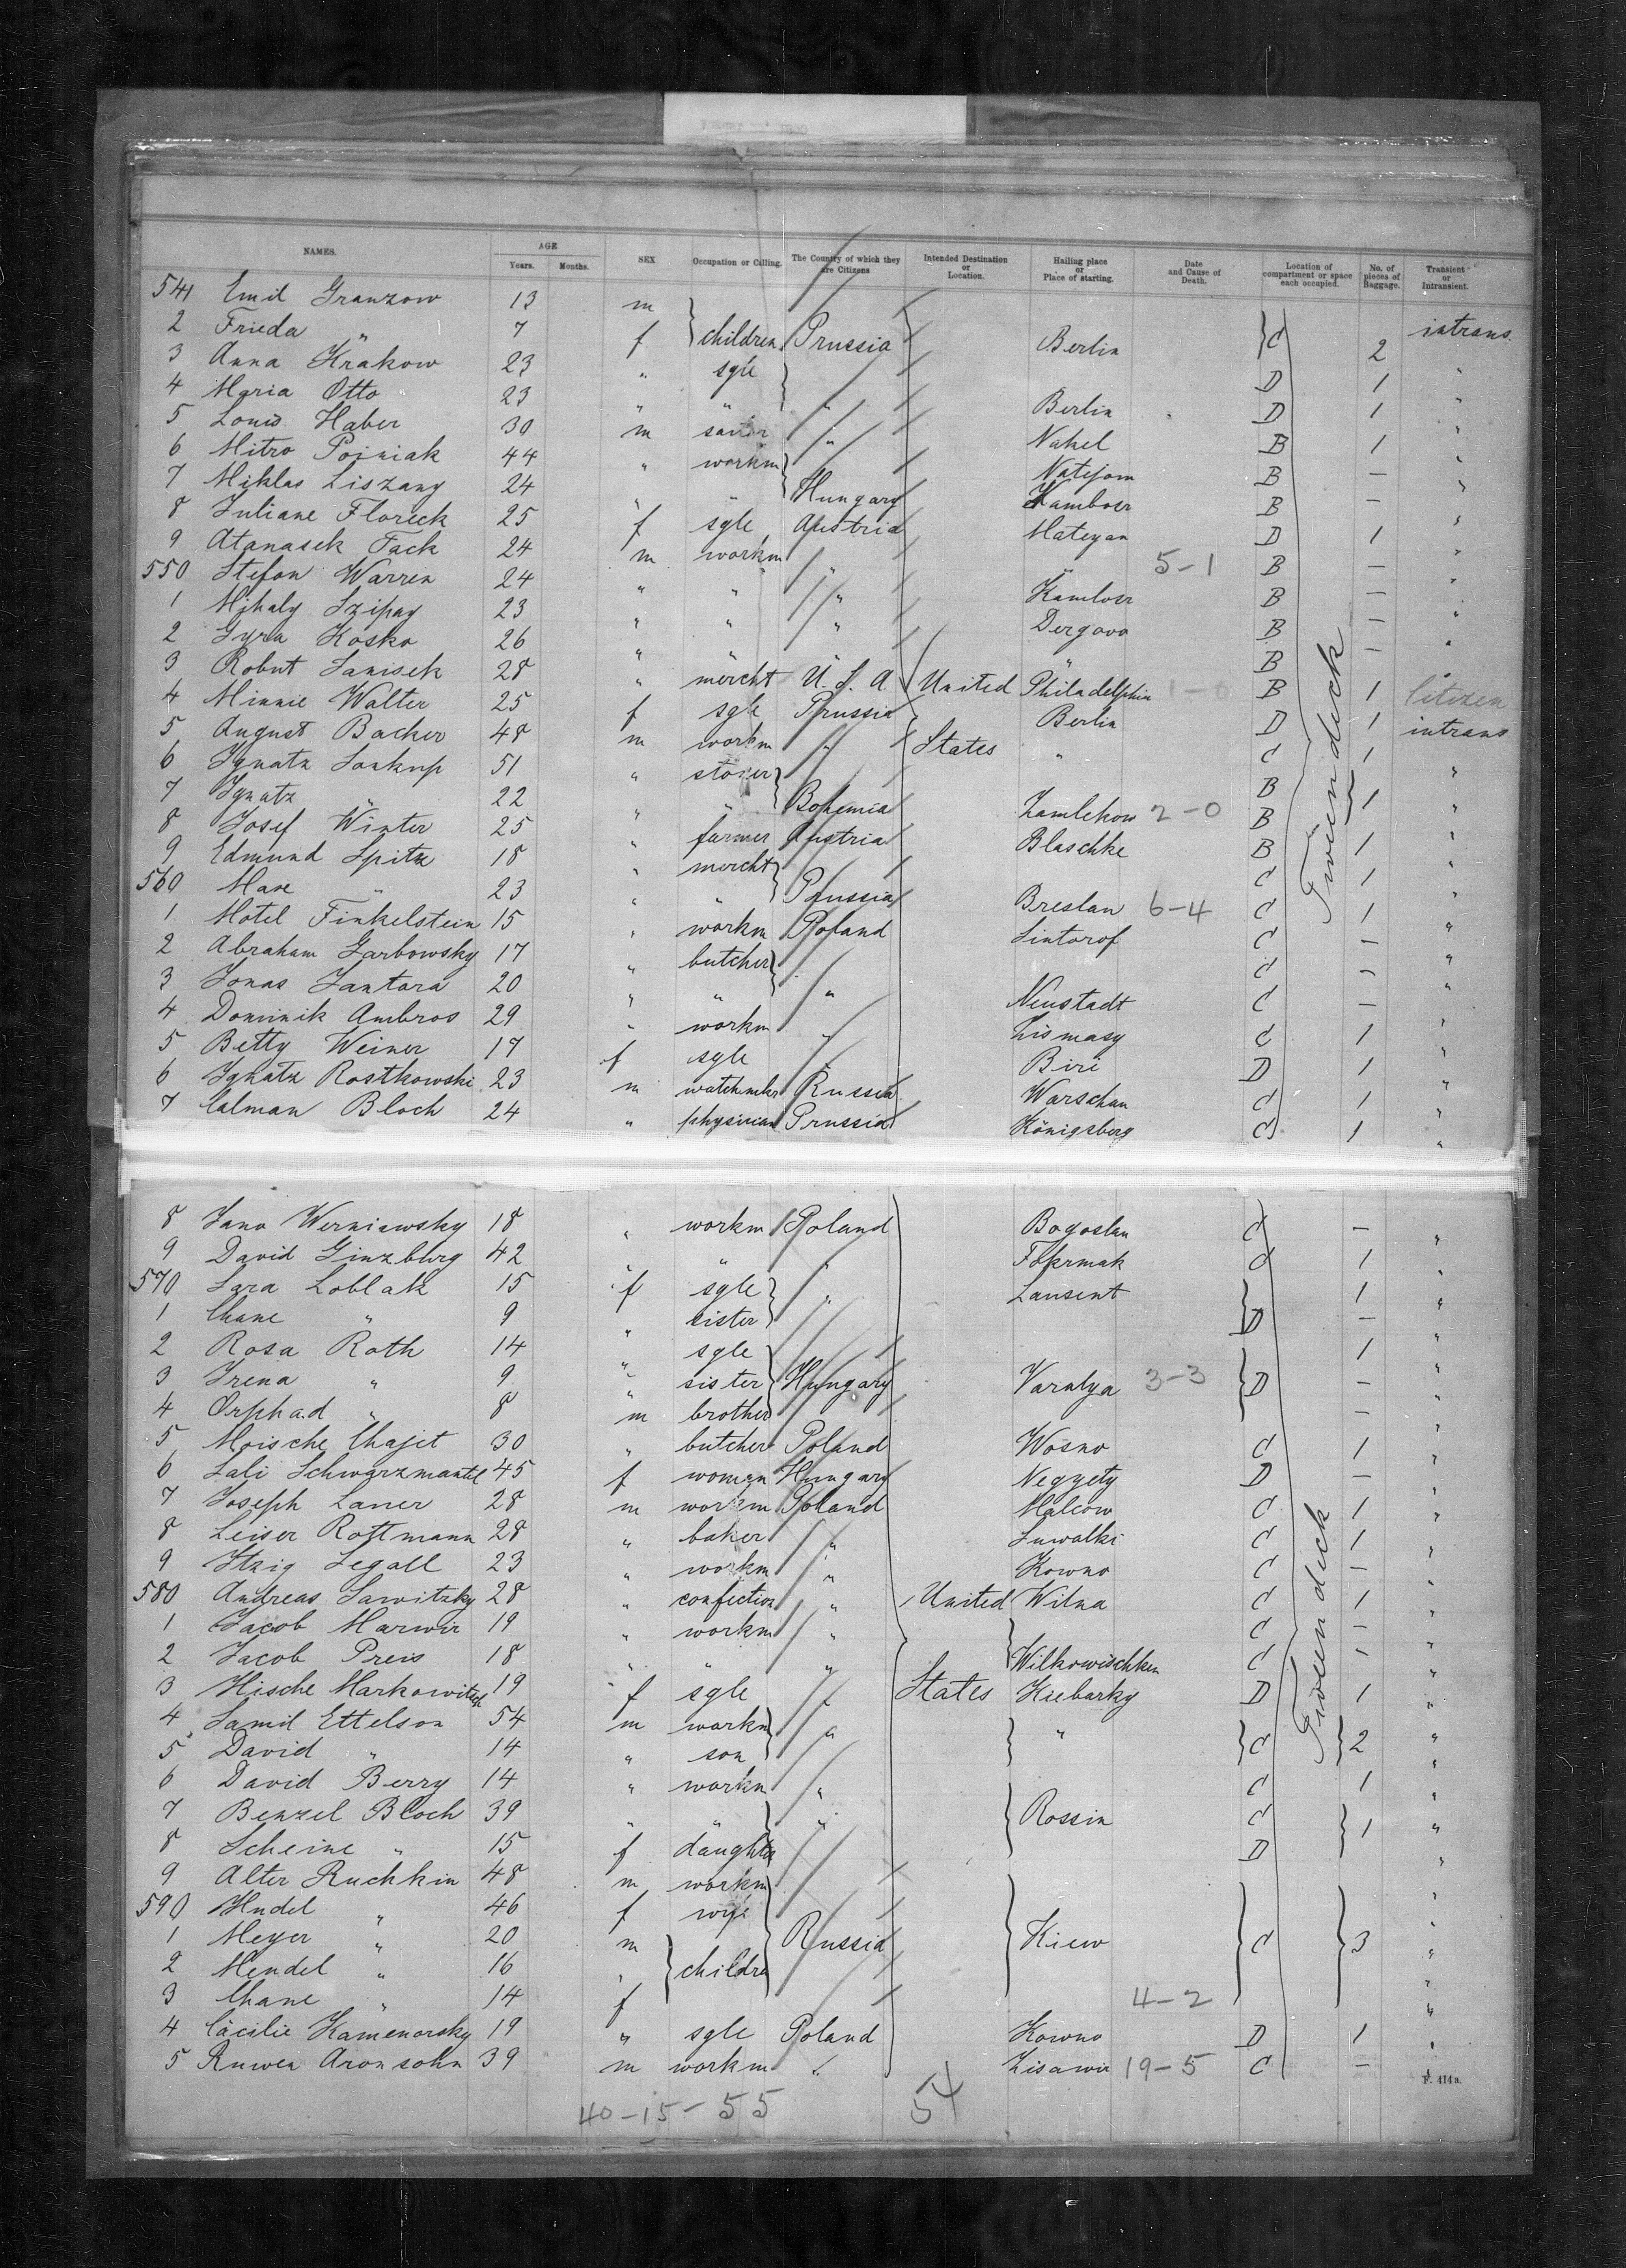 NAMES. AGE Years. Months. SEX Occupation or Calling. The Country of which they are Citizens Intended Destination or Location. Hailing place or Place of starting. Date and Cause of Death. Location of compartment or space each occupied. No. of pieces of Baggage. Transient or Intransient.
541 Emil Granzow 13 m
2 Frieda " 7 f children Prussia Berlin C 2 intrans
3 Anna Krakow 23 " sgle D 1 "
4 Maria Otto 23 " " " Berlin D 1 "
5 Louis Haber 30 m " Nakel B 1 "
6 Mitro Poiniak 44 " workm B — "
7 Miklas Liszany 24 " " Hungary B — "
8 Juliane Floreck 25 f sgle Austria Mateyan D 1 "
9 Atanasek Fack 24 m workm " " 5-1 B — "
550 Stefan Warren 24 " " " B — "
1 Mihaly Szipay 23 " " " Dergova B — "
2 Gyra Kosko 26 " " " B — "
3 Robut Janisek 28 " mercht U.S.A United Philadelphia 1-0 B 1 Citizen
4 Minnie Walter 25 f sgle Prussia Berlin D 1 intrans
5 August Backer 48 m workm " States " C 1 "
6 Ignatz Soukup 51 " B "
7 Ignatz " 22 " " Bohemia 2-0 B 1 "
8 Josef Winter 25 " farmer Austria Blaschke B 1 "
9 Edmund Spitz 18 " mercht C 1 "
560 Max " 23 " " Prussia Breslau 6-4 C 1 "
1 Motel Finkelstein 15 " workm Poland Sintorof C — "
2 Abraham Garbowsky 17 " butcher C — "
3 Jonas Jantora 20 " " " Neustadt C — "
4 Dominik Ambros 29 " workm " Lismasy C 1 "
5 Betty Weiner 17 f sgle " Biri D 1 "
6 Ignatz Rostkowski 23 m watchmkr Russia Warschau C 1 "
7 Calman Bloch 24 " physician Prussia Königsberg C 1 "
Tweendeck
8 Jano Werniawsky 18 " workm Poland Bogoslau C — "
9 David Ginzburg 42 " " " C 1 "
570 Sara Loblatz 15 f sgle " Lansent 1 "
1 Chane " 9 " sister D — "
2 Rosa Roth 14 " sgle 1 "
3 Irena " 9 " sister Hungary Varalya 3-3 D — "
4 Orphad " 8 m brother — "
5 Moische Chajet 30 " butcher Poland Wosno C 1 "
6 Sali Schwarzmantel 45 f woman Hungary Negyety D — "
7 Joseph Laner 28 m workm Poland Malcow C 1 "
8 Leiser Rottmann 28 " baker " Suwalki C 1 "
9 Itzig Segall 23 " workm " Kowno C — "
580 Andreas Sawitzky 28 " confection " United Wilna C 1 "
1 Jacob Marwir 19 " workm " C — "
2 Jacob Preis 18 " " " Wilkowischken C — "
3 Hische Markowitsch 19 f sgle " States Kiebarky D 1 "
4 Samil Ettelson 54 m workm " " C 2 "
5 David " 14 " son "
6 David Berry 14 " workm " C 1 "
7 Benzel Bloch 39 " " " Rossin C 1 "
8 Scheine " 15 f daughter D "
9 Alter Ruchkin 48 m workm "
590 Hudel " 46 f wife "
1 Meyer " 20 m Russia Kiew C 3 "
2 Mendel " 16 " children "
3 Chane " 14 f 4-2 "
4 Cäcilie Kamenorsky 19 " sgle Poland Kowno D 1 "
5 Ruwen Aronsohn 39 m workm " Lisawir 19-5 C — "
Tweendeck
F. 414a.
40-15-55 54